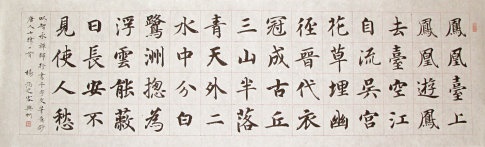 鳳凰臺上
鳳凰遊鳳
去臺空江
自流吳宮
花草埋幽
徑晉代衣
冠成古丘
三山半落
青天外二
水中分白
鷺洲揔為
浮雲能蔽
日長安不
見使人愁
以智永禪師
唐人